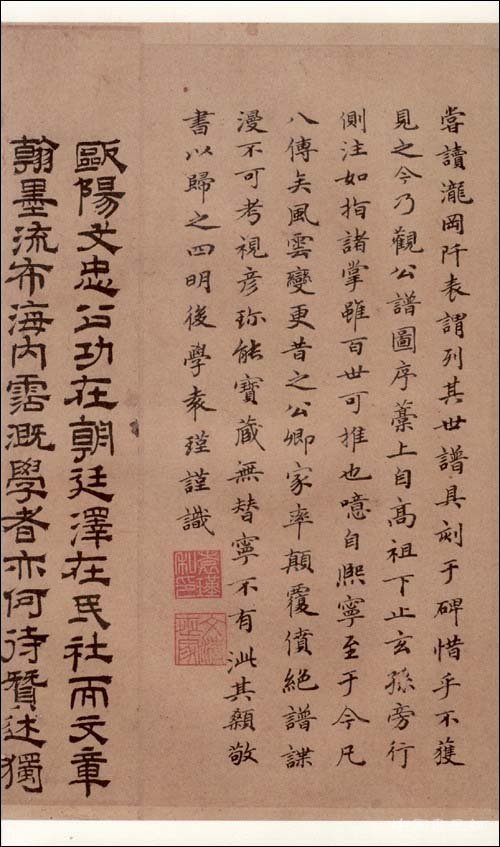 嘗讀瀧岡阡表謂列其世譜具刻于碑惜乎不獲
見之今乃觀公譜圖序藁上自高祖下止玄孫旁行
側注如指諸掌雖百世可推也噫自熈寧至于今凡
八傳矣風雲變更昔之公卿家率顛覆僨絶譜諜
漫不可考視彥珎能寶藏無替寧不有泚其顙敬
書以歸之四明後學袁瑾謹識
歐陽文忠公功在朝廷澤在民社而文章
翰墨流布海内霑溉學者亦何待贅述獨